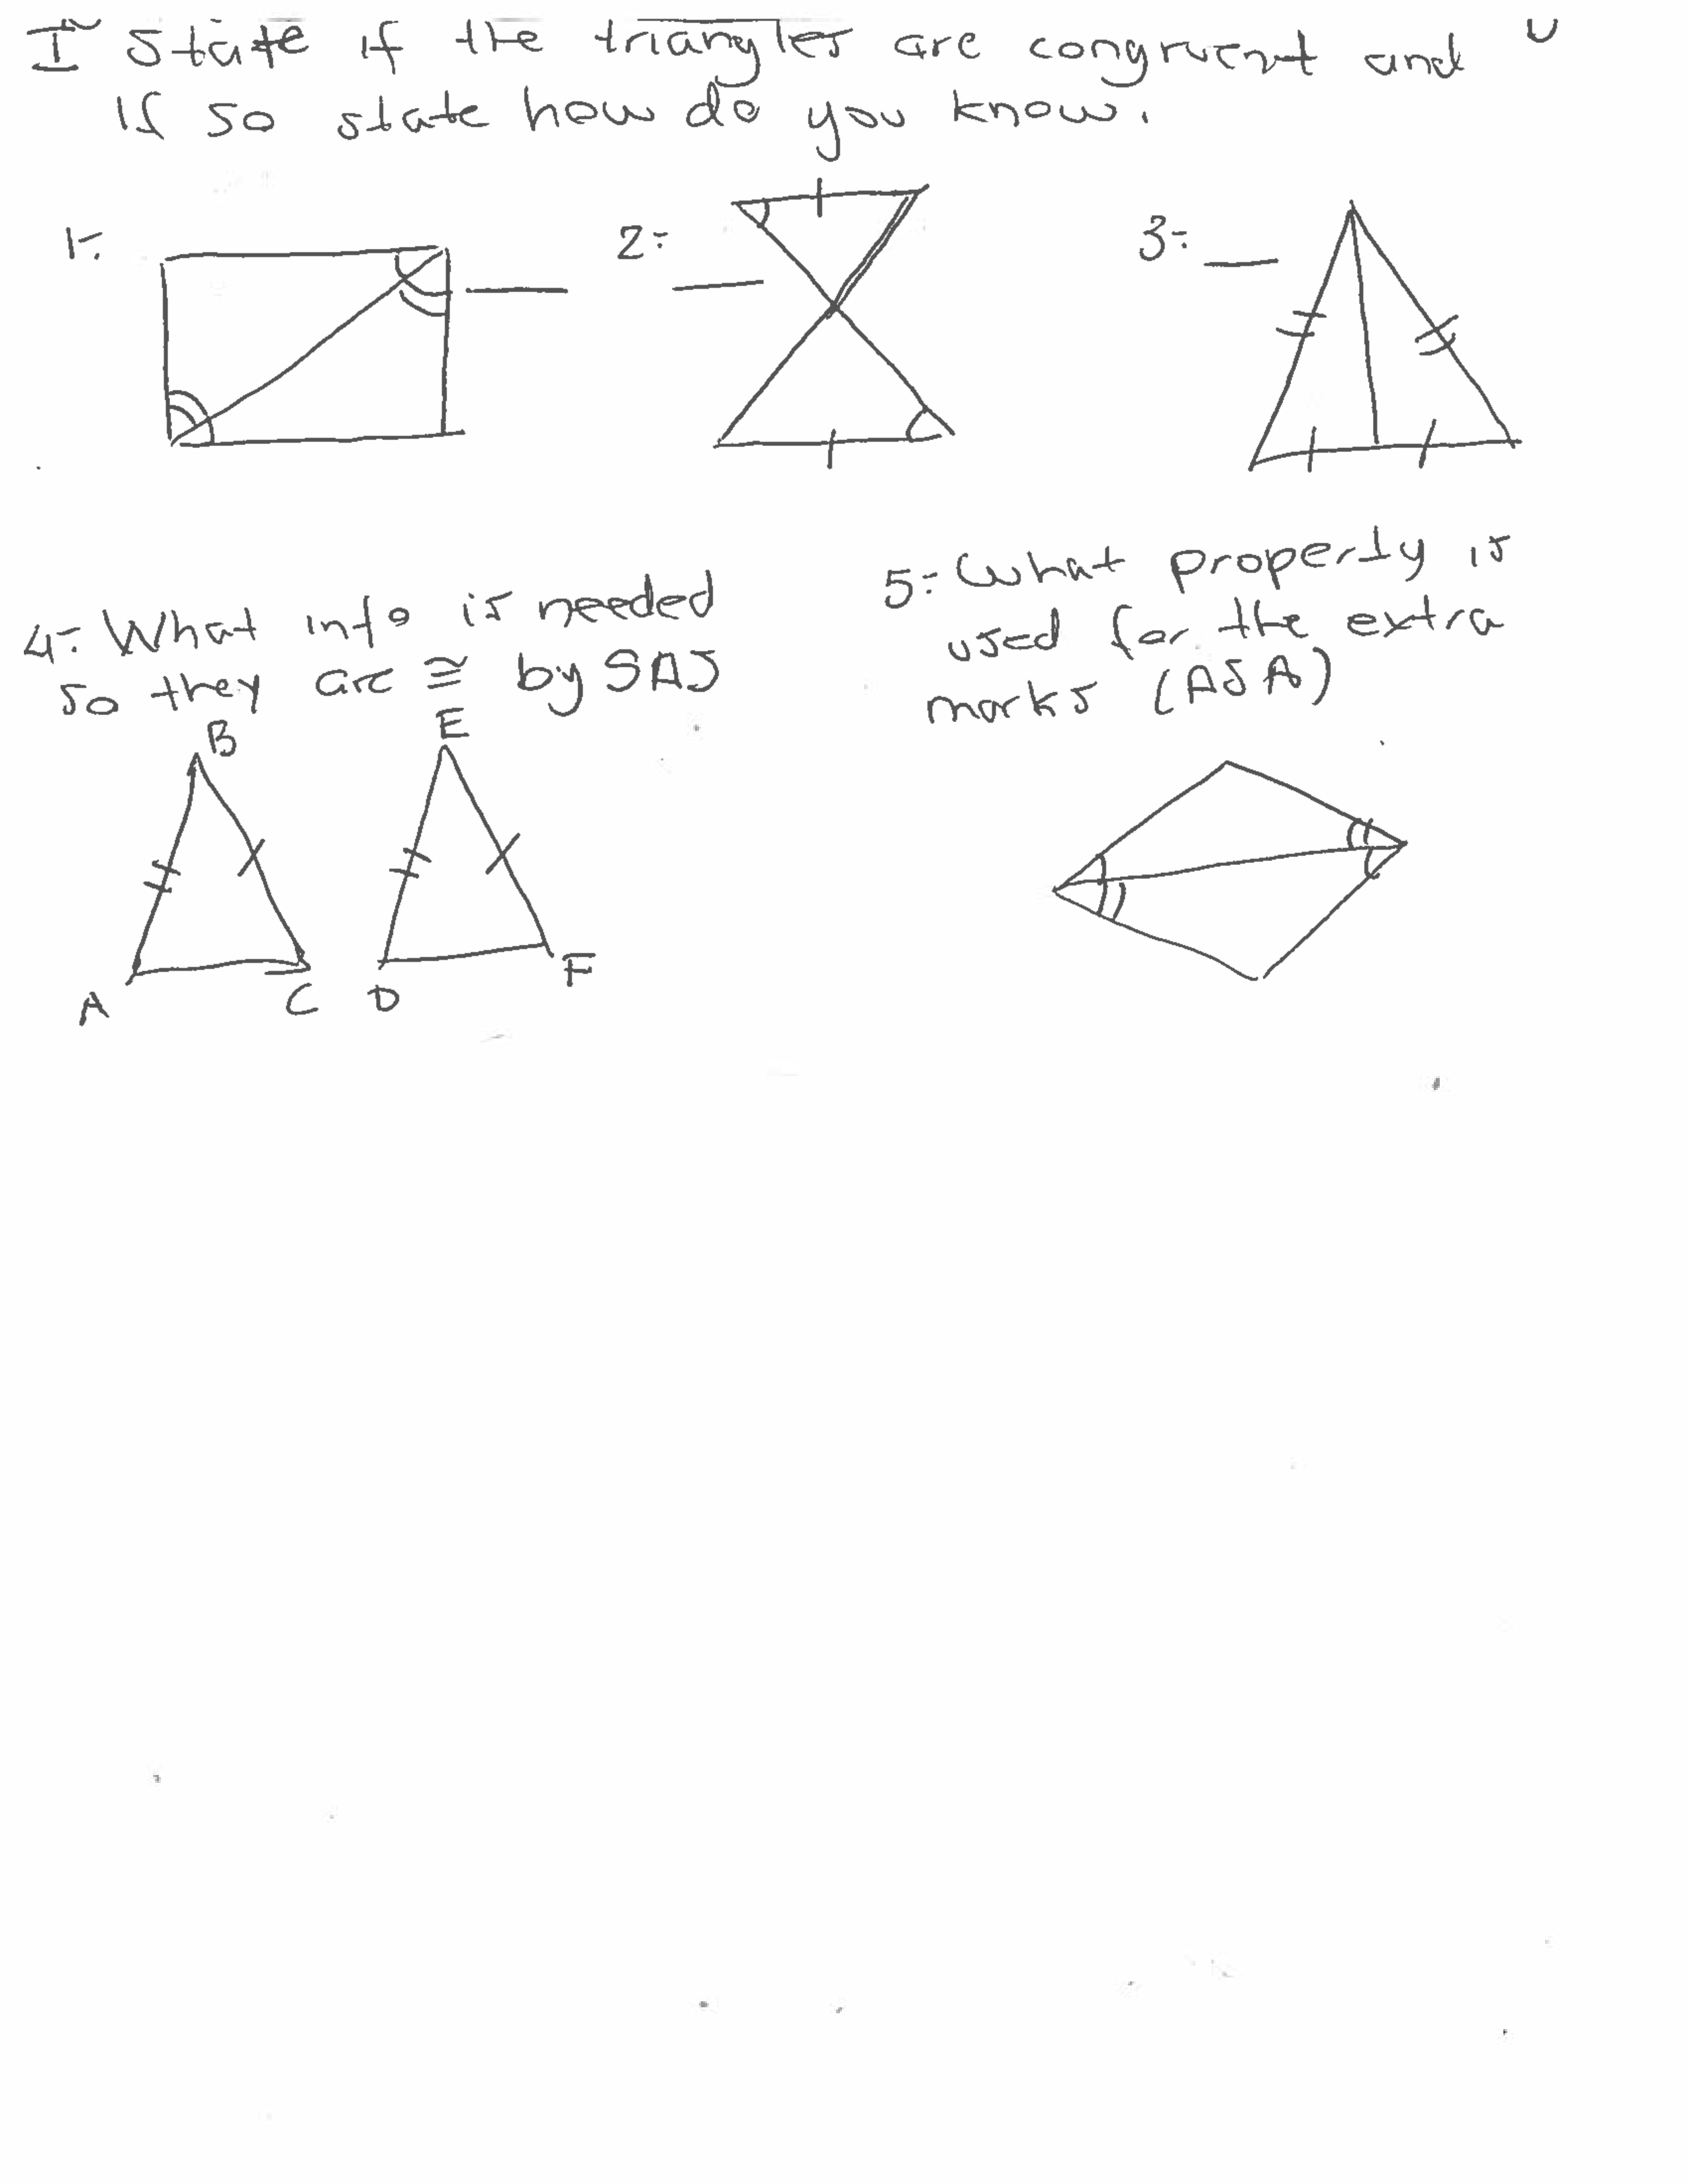 I State if the triangles are congruent and
If so state how do you know.
1-.
2-.
3-.
4-. What info is needed
so they are ≅ by SAS
5-. What property is
used for the extra
marks (ASA)
B
E
A
C
D
F